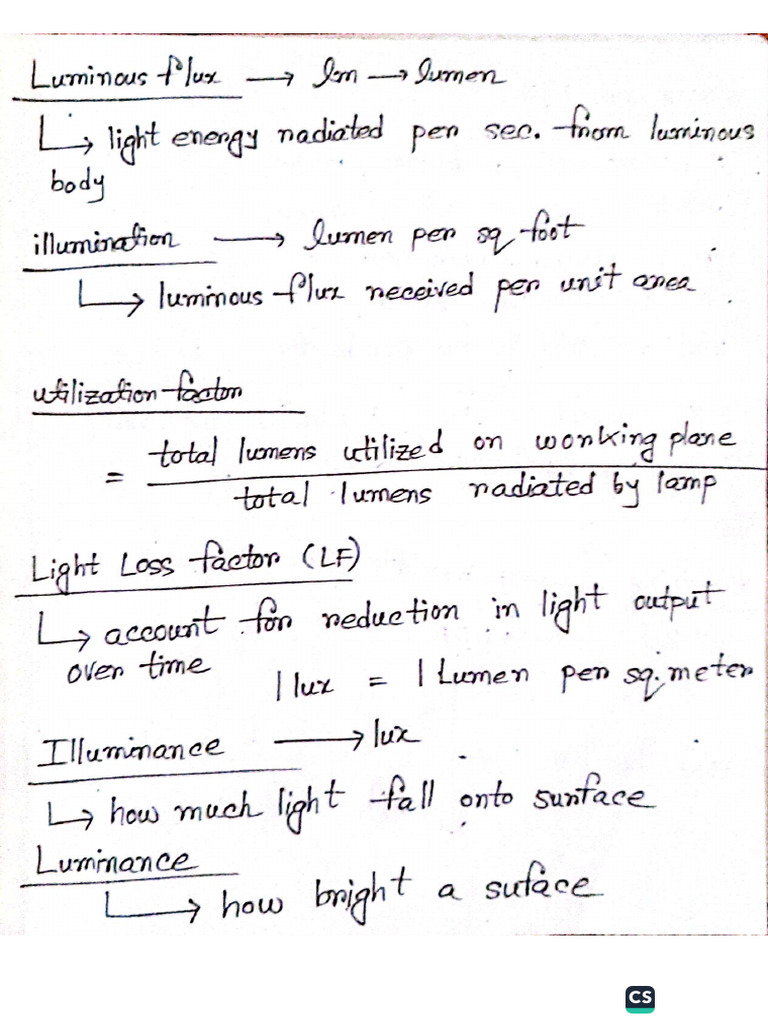 Luminous flux → lm → lumen
↳ light energy radiated per sec. from luminous
body
illumination → lumen per sq foot
↳ luminous flux received per unit area
utilization factor
= total lumens utilized on working plane
total lumens radiated by lamp
Light Loss factor (LF)
↳ account for reduction in light output
over time
1 lux = 1 Lumen per sq. meter
Illuminance → lux
↳ how much light fall onto surface
Luminance
↳ how bright a suface
CS